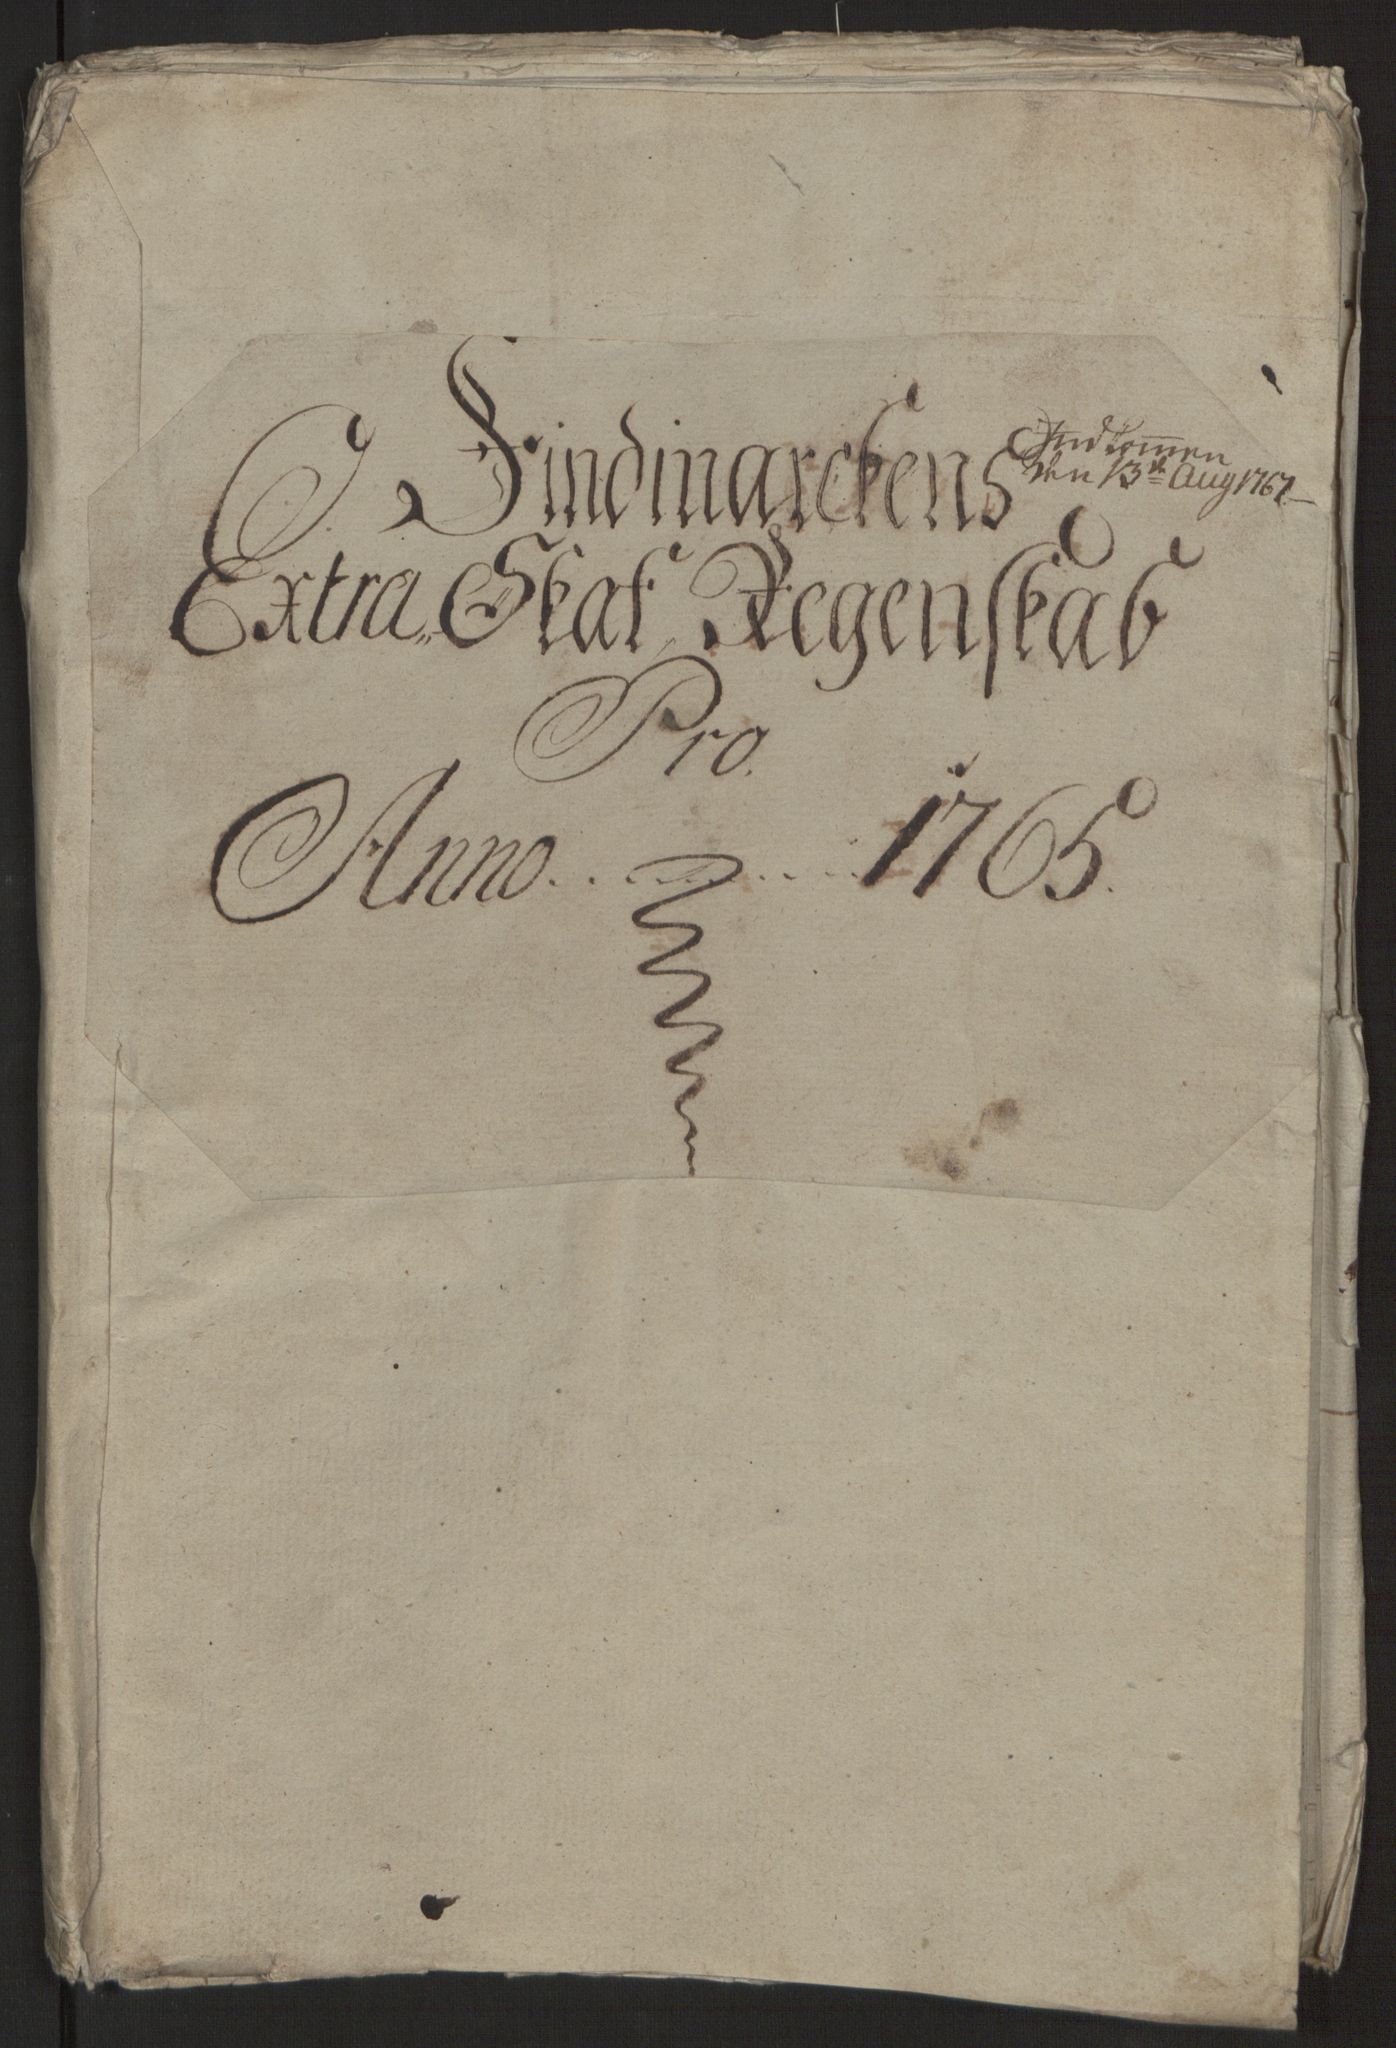 Findmarckens
Indkommen
den 13de Aug 1767
Extra Skat Regenskab
Pro
Anno 1765.